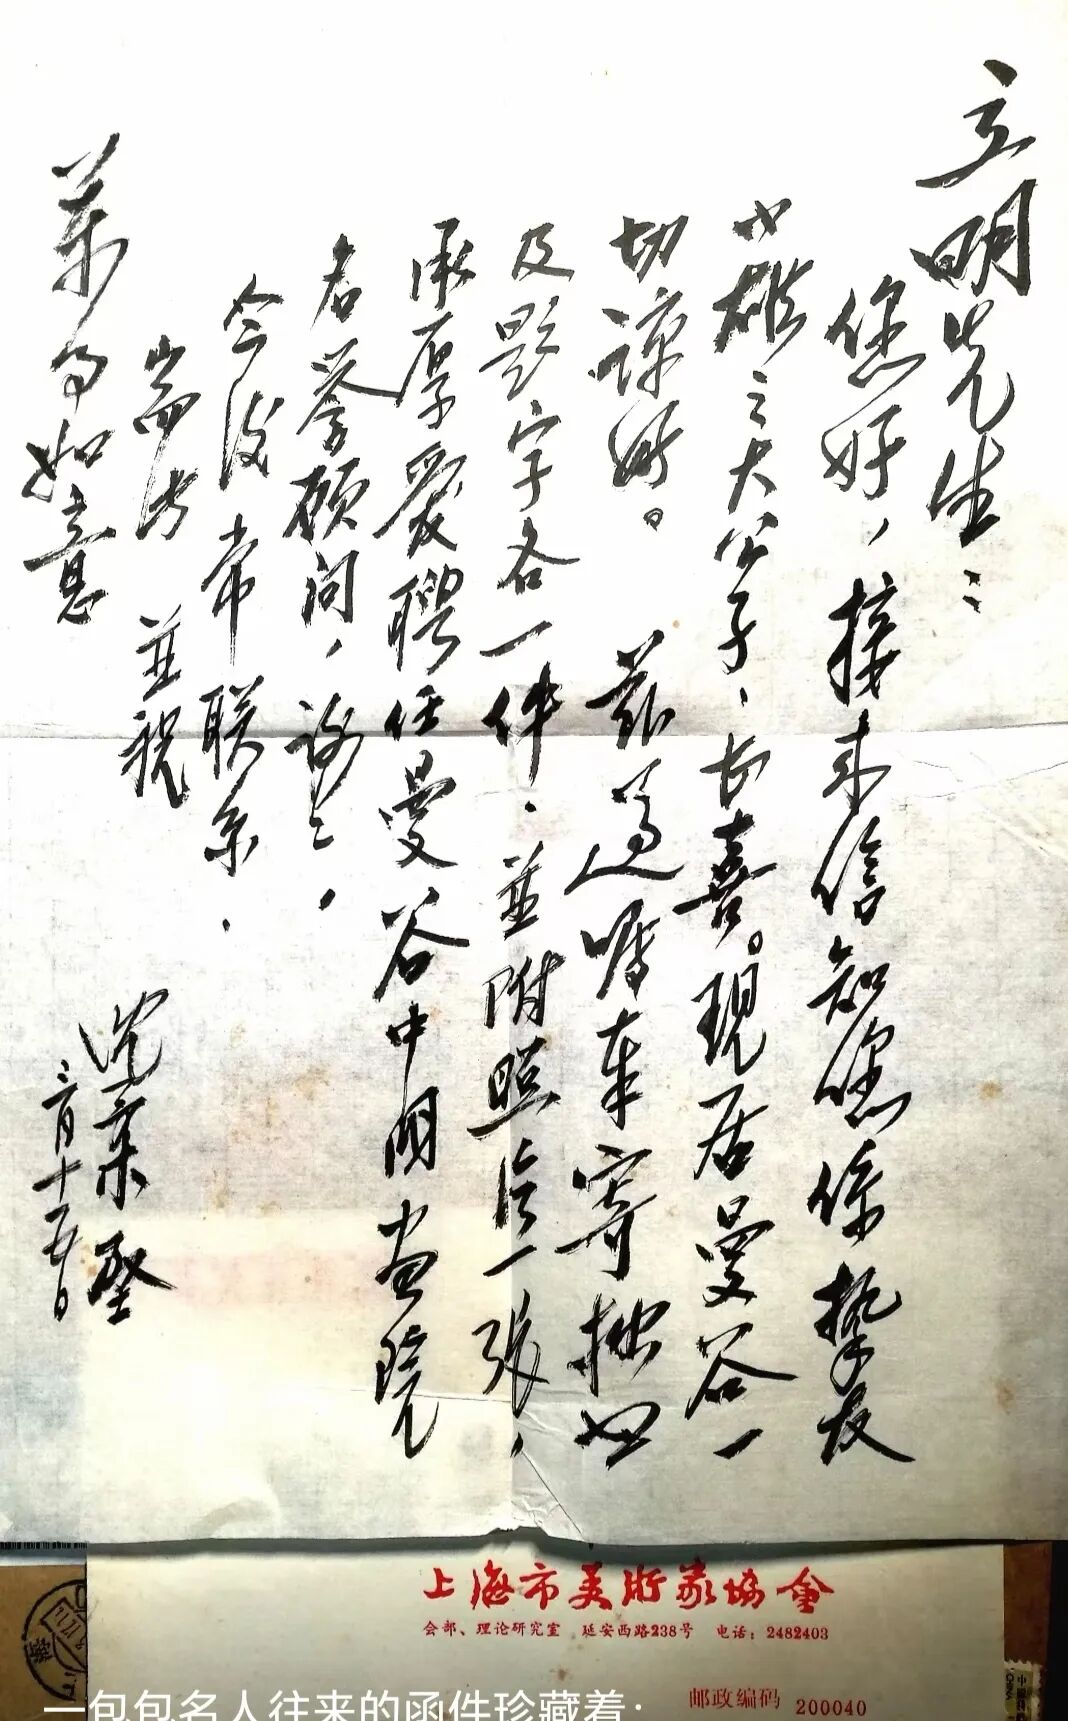 立明先生：
您好，接来信知您系挚友
少雄之大公子、长喜。现居曼谷一
切谅好。兹遵嘱奉寄拙画
及影字各一件、并附照片一张，
承厚爱聘任曼谷中国画院
名誉顾问，谢谢，
今后常联系.
耑此 並祝
万事如意
启
三月十五日
上海市美術家協會
会部、理论研究室 延安西路238号 电话：2482403
邮政编码 200040
一包包名人往来的函件珍藏着；